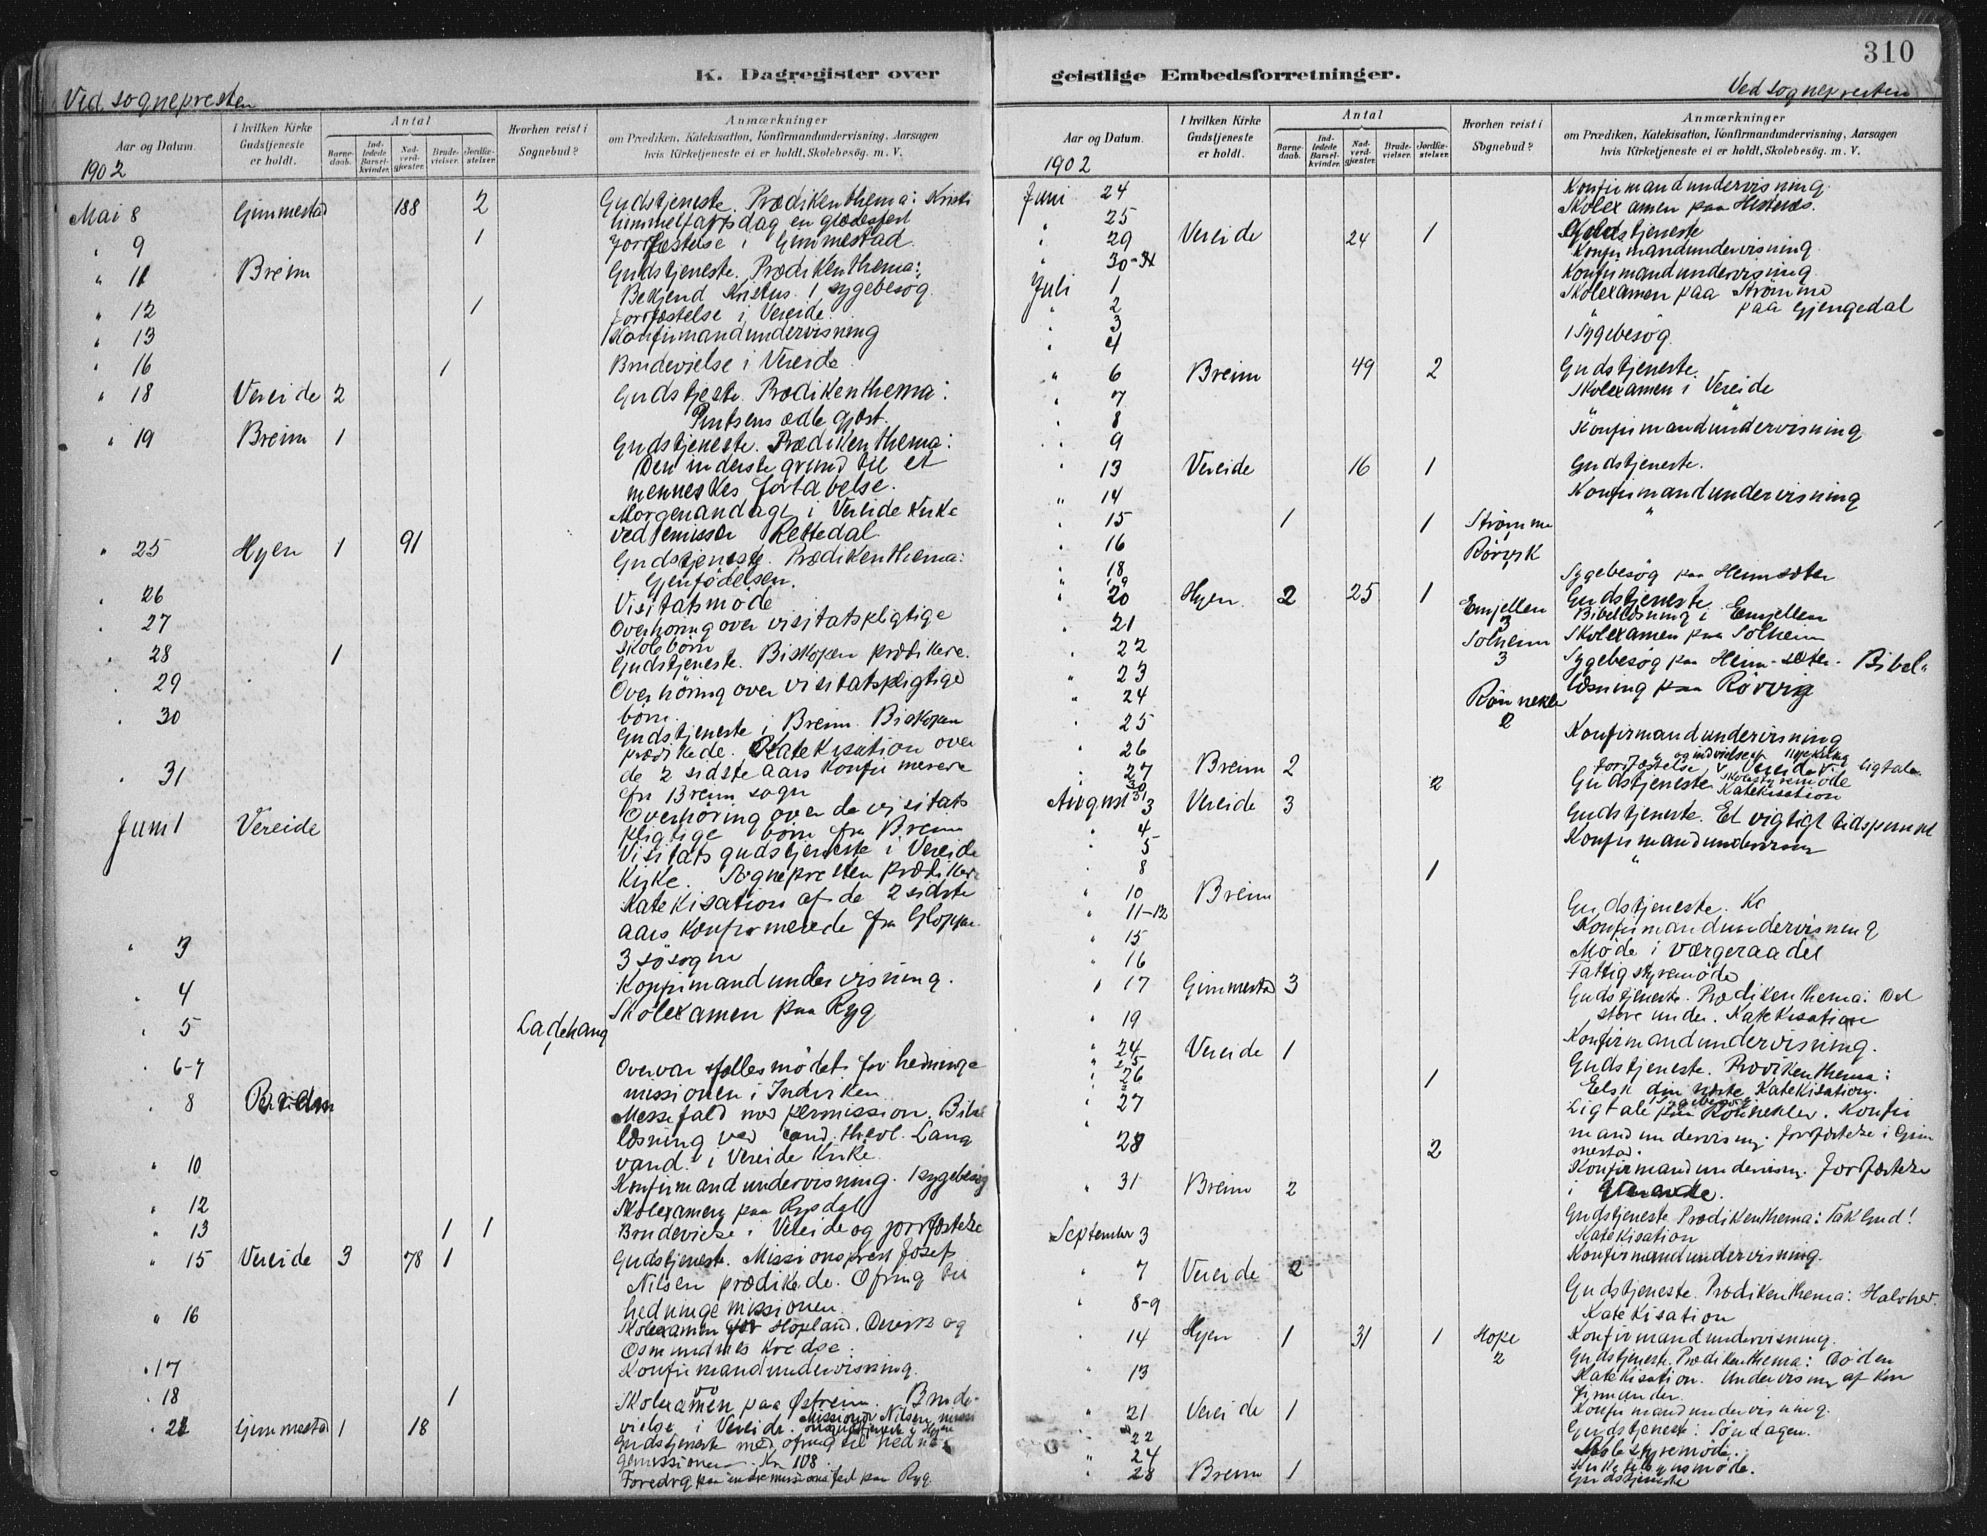 310
K. Dagregister over
geistlige Embedsforretninger.
Ved sognepresten
Aar og Datum.
I hvilken Kirke Gudstjeneste er holdt.
Antal
Barnedaab.
Indledede Barselkvinder.
Nadverdgjæster.
Brudevielser.
Jordfæstelser.
Hvorhen reist i Sognebud?
Anmærkninger
om Prædiken, Katekisation, Konfirmandundervisning, Aarsagen
hvis Kirketjeneste ei er holdt, Skolebesøg. m. V.
1902
Mai 8 Gimmestad 188 2 Gudstjeneste. Prædikenthema: Kristi
himmelfartsdag en glædesfest
" 9 1 Jordfæstelse i Gimmestad
" 11 Breim Gudstjeneste. Prædikenthema:
Bekjend Kristus. 1 sygebesøg.
" 12 1 Jordfæstelse i Vereide.
" 13 Konfirmandundervisning
" 16 1 Brudevielse i Vereide
" 18 Vereide 2 Gudstjeste. Prædikenthema:
Pintsens ædle gjæst.
" 19 Breim 1 Gudstjeneste. Prædikenthema:
Den inderste grund til et
menneskes fortabelse.
Morgenandagt i Vereide Kirke
ved emissær Rettedal
" 25 Hyen 1 91 Gudstjeneste. Prædikenthema:
Gjenfødelsen.
" 26 Visitatsmøde
" 27 Overhøring over visitatspligtige
skolebørn
" 28 1 Gudstjeneste. Biskopen prædikere.
" 29 Overhøring over visitatspligtige
børn
" 30 Gudstjeneste i Breim. Biskopen
prædikede. Katekisation over
de 2 sidste aars konfirmerede
fra Breim sogn
" 31 Overhøring over de visitats
pligtige børn fra Breim
Juni 1 Vereide Visitatsgudstjeneste i Vereide
Kirke. Sognepresten prædikere
Katekisation af de 2 sidste
aars konfirmerede fra Gloppen
3 søsogn
" 3 Konfirmandundervisning.
" 4 Skolexamen paa Ryg
" 5 Ladehaug
1
" 6-7 Overvar fællesmødet for hedninge
missionen i Indviken
" 8 Breim Messefald med permission. Bibel
læsning ved cand. theol. Lang
vand i Vereide Kirke.
" 10 Konfirmandundervisning. 1 sygebesøg
" 12 Skolexamen paa Rysdal
" 13 1 1 Brudevielse i Vereide og jordfæstelse
" 15 Vereide 3 78 1 Gudstjeneste. Missionsprest Josef
Nilsen prædikede. Ofring til
hedningemissionen.
" 16 Skolexamen for Hopland, Devik og
Osmundnes Kredse.
" 17 Konfirmandundervisning.
" 18 1 Skolexamen paa Østreim. Brude-
vielse i Vereide.
" 22 Gimmestad 1 18 Gudstjeneste med ofring til hednin
gemissionen. Kr 108.
Foredrg paa indremissionsfest paa Ryg.
Ved sognepresten
Aar og Datum.
I hvilken Kirke Gudstjeneste er holdt.
Antal
Barnedaab.
Indledede Barselkvinder.
Nadverdgjæster.
Brudevielser.
Jordfæstelser.
Hvorhen reist i Sognebud?
Anmærkninger
om Prædiken, Katekisation, Konfirmandundervisning, Aarsagen
hvis Kirketjeneste ei er holdt, Skolebesøg. m. V.
1902
Juni 24 Konfirmandundervisning.
" 25 Skolexamen paa Hestenes.
" 29 Vereide 24 1 Gudstjeneste
" 30-31 Konfirmandundervisning.
Juli 1 Konfirmandundervisning
" 2 Skolexamen paa Strømme
" 3 " paa Gjengedal
" 4 1 Sygebesøg.
" 6 Breim 49 2 Gudstjeneste.
" 7 Skolexamen i Vereide
" 8 " "
" 9 Konfirmandundervisning
" 13 Vereide 16 1 Gudstjeneste.
" 14 Konfirmandundervisning
" 15 1 1 Strømme "
" 16 Rørvik
" 18
" 19 Sygebesøg paa Heimsæter
" 20 Hyen 2 25 1 Gudstjeneste
" 21 Emjellen Bibellæsning i Emjellen
" 22 Solheim 3 Skolexamen paa Solheim
" 23 Sygebesøg paa Heim-sæter. Bibel-
" 24 læsning paa Rørvig
" 25 Rønnekler 2
" 26 Konfirmandundervisning
" 27 Breim 2 Gudstjeneste
" 30 2 Jordfæstelse i Vereide. ligtale
Skolestyremøde
Katekisation
" 31
August 3 Vereide 3 Gudstjeneste. Et vigtigt tidspunkt
" 4 Konfirmandundervisn
" 5 "
" 8 1
" 10 Breim Gudstjeneste. Ka
" 11-12 Konfirmandundervisning
" 15 Møde i værgeraadet
" 16 Fattigstyremøde
" 17 Gimmestad 3 Gudstjeneste. Prædikenthema: Det
store under. Katekisation
" 19 Konfirmandundervisning.
" 24 Vereide 1 Gudstjeneste. Prædikenthema:
Elsk din næste. Katekisation.
" 25
" 26 1 Ligtale paa Rønnekler. Konfir
" 27 mandundervisning. Jordfæstelse i Gim
mestad.
" 28 2 Konfirmandundervisn. Jordfæstelse
i Vereide.
" 31 Breim 2 Gudstjeneste Prædikenthema: Tak Gud!
Katekisation
September 3 Konfirmandundervisning.
" 7 Vereide 2 Gudstjeneste. Prædikenthema:
Katekisation
" 8-9 Konfirmandundervisning.
" 14 Hyen 1 31 1 Hope 2 Gudstjeneste. Prædikenthema: Døden
Katekisation. Undervisning af kon
firmander.
" 13 Konfirmandundervisning.
" 21 Vereide 1 Gudstjeneste: Søndagen.
" 22 Skolestyremøde.
" 24
" 28 Breim 1 Gudstjeneste